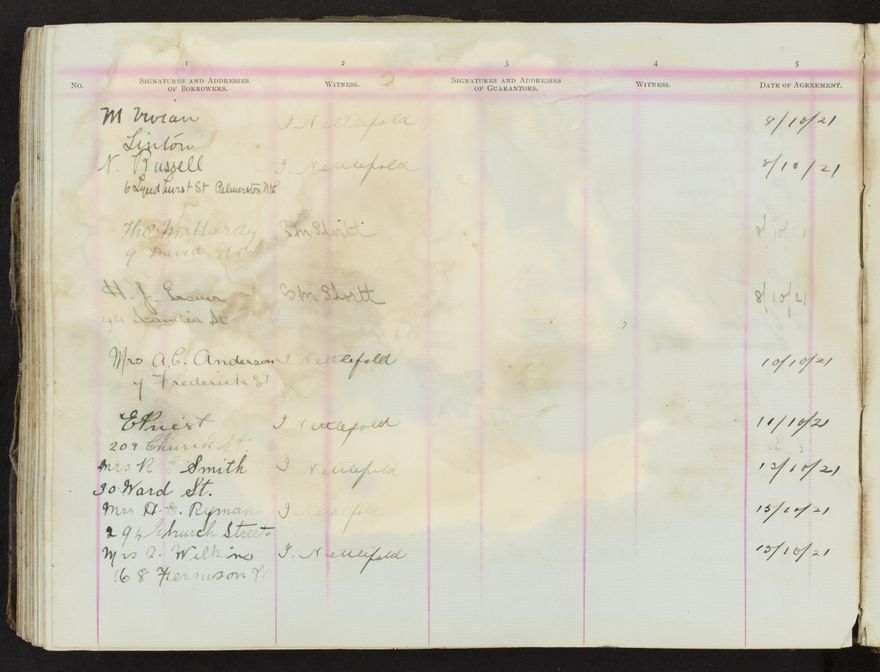 1 2 3 4 5
No. Signatures and Addresses of Borrowers. Witness. Signatures and Addresses of Guarantors. Witness. Date of Agreement.
M Vivian I Nettlefold 8/10/21
Linton
N. Russell I. Nettlefold 8/10/21
6 Lyndhurst St Palmerston Nth
Thos M. Hardy S M Shortt 8/10/21
9 David St
H. J. S M Shortt 8/10/21
44
Mrs A. C. Anderson I. Nettlefold 10/10/21
Frederick St
E Priest I Nettlefold 11/10/21
209 Church St
Mrs R Smith I Nettlefold 13/10/21
30 Ward St.
Mrs H. E. Ryman I Nettlefold 15/10/21
294 Church Street
Mrs A. Wilkins I. Nettlefold 15/10/21
168 Ferguson